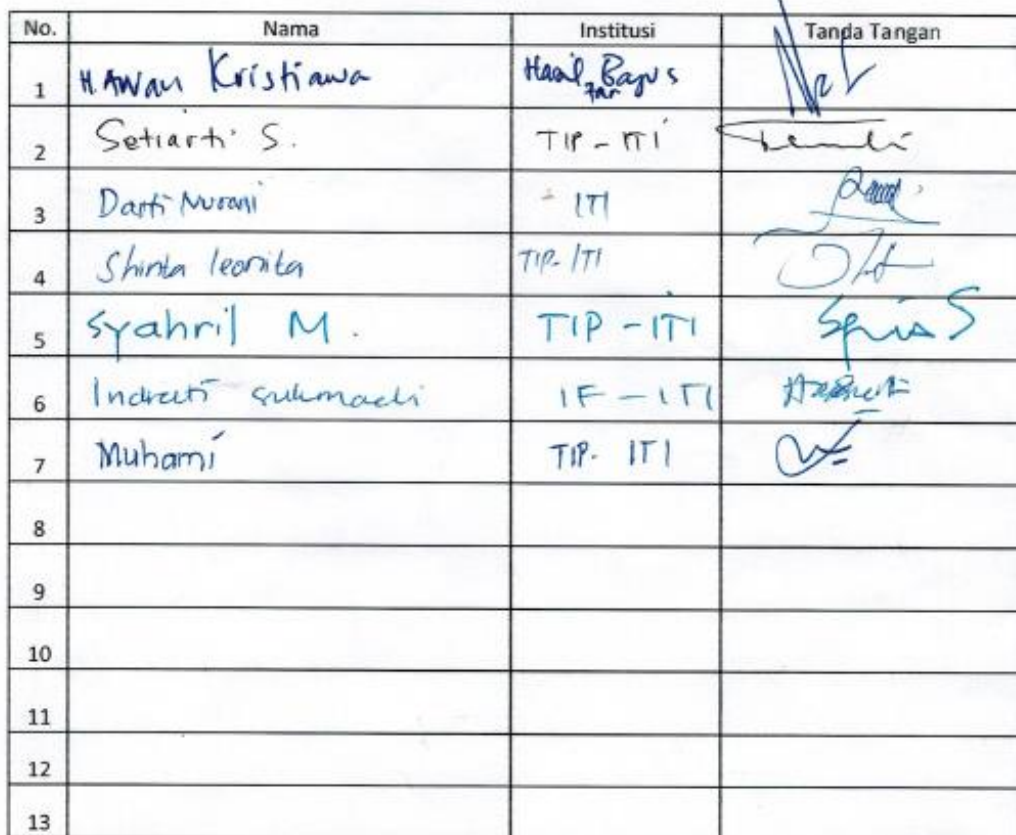 No. Nama Institusi Tanda Tangan
1 HAWAN Kristiawa Hasil Bagus
2 Setiarti S. TIP - ITI
3 Darti Nurani - ITI
4 Shinta leonita TIP- ITI
5 Syahril M. TIP - ITI
6 Indrati sukmadi IF - ITI
7 Muhami TIP- ITI
8
9
10
11
12
13